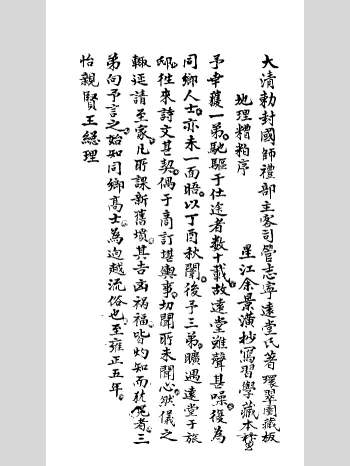 大清勅封國師禮部主客司管志寧遠堂氏著環翠園藏板
地理糟粕序
星江余景瀇抄寫習學藏本
予幸獲一第。馳驅于仕途者數十載。故遠堂雖聲甚噪。復為
同鄉人士。亦未一面晤。以丁酉秋闈。後予三弟。曠遇遠堂于旅
邸。往來詩文甚契。偶于商訂堪輿事。切聞所未聞。心然儀之
輒延請至家。凡所課新舊墳。其吉凶禍福。皆灼知而犹見者。三
弟向予言之。始知同鄉高士。為迥越流俗也。至雍正五年。
怡親賢王總理